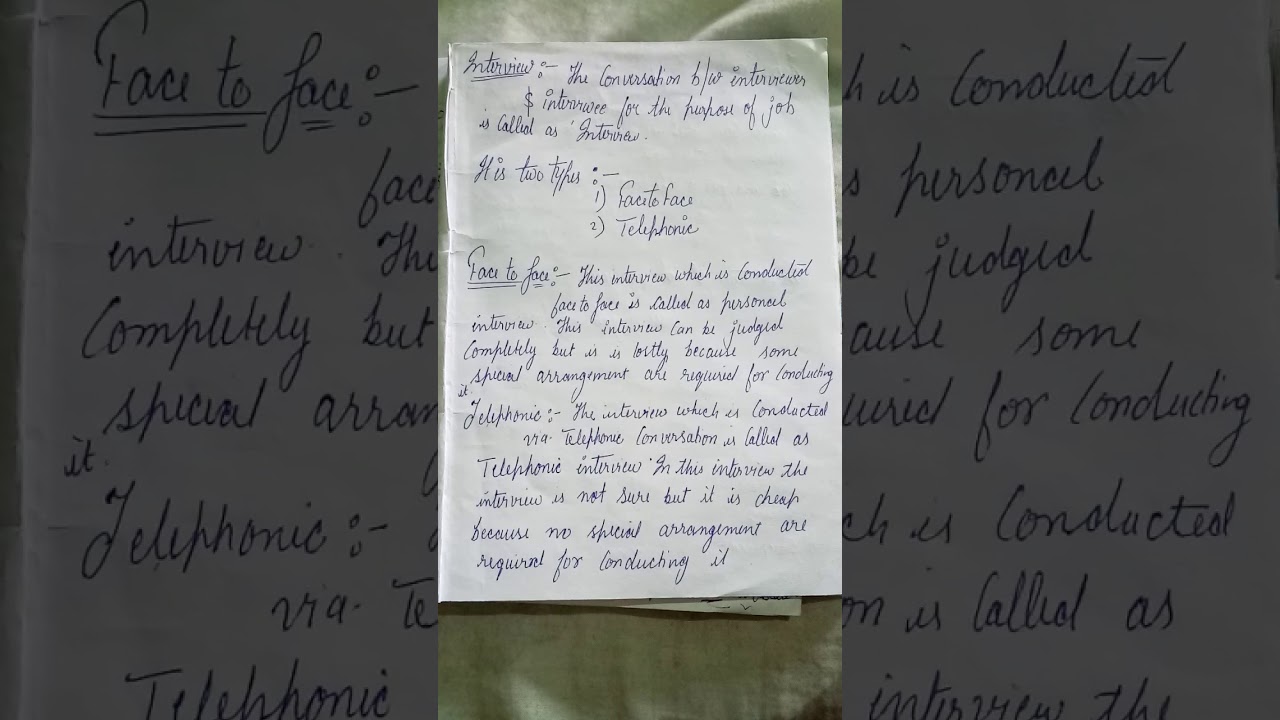 Interview :- The Conversation b/w interviewer
$ interviwee for the purpose of job
is Called as Interview.
It is two types :-
1) Face to Face
2) Telephonic
Face to face :- This interview which is Conducted
face to face is called as personal
interview. This interview can be judged
Completely but is is costly because some
special arrangement are required for Conducting
it.
Telephonic :- The interview which is Conducted
via. Telephonic Conversation is Called as
Telephonic interview. In this interview the
interview is not sure but it is cheap
because no special arrangement are
required for Conducting it